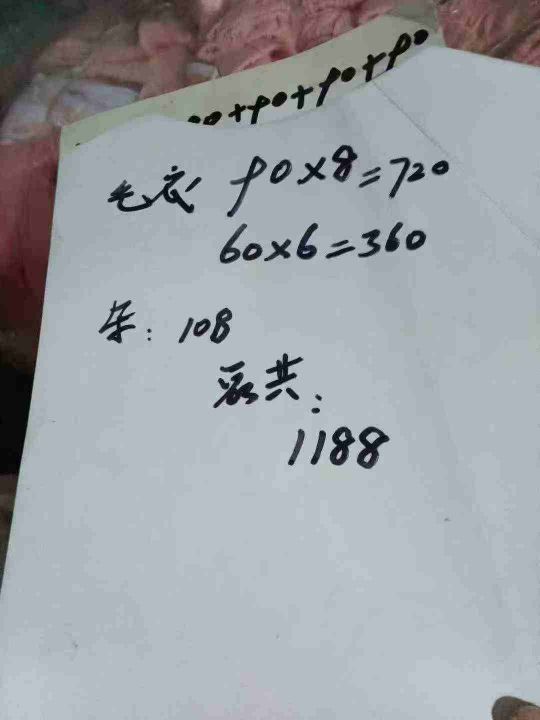 90+90+90+90
毛衣 90×8=720
60×6=360
杂: 108
总共:
1188